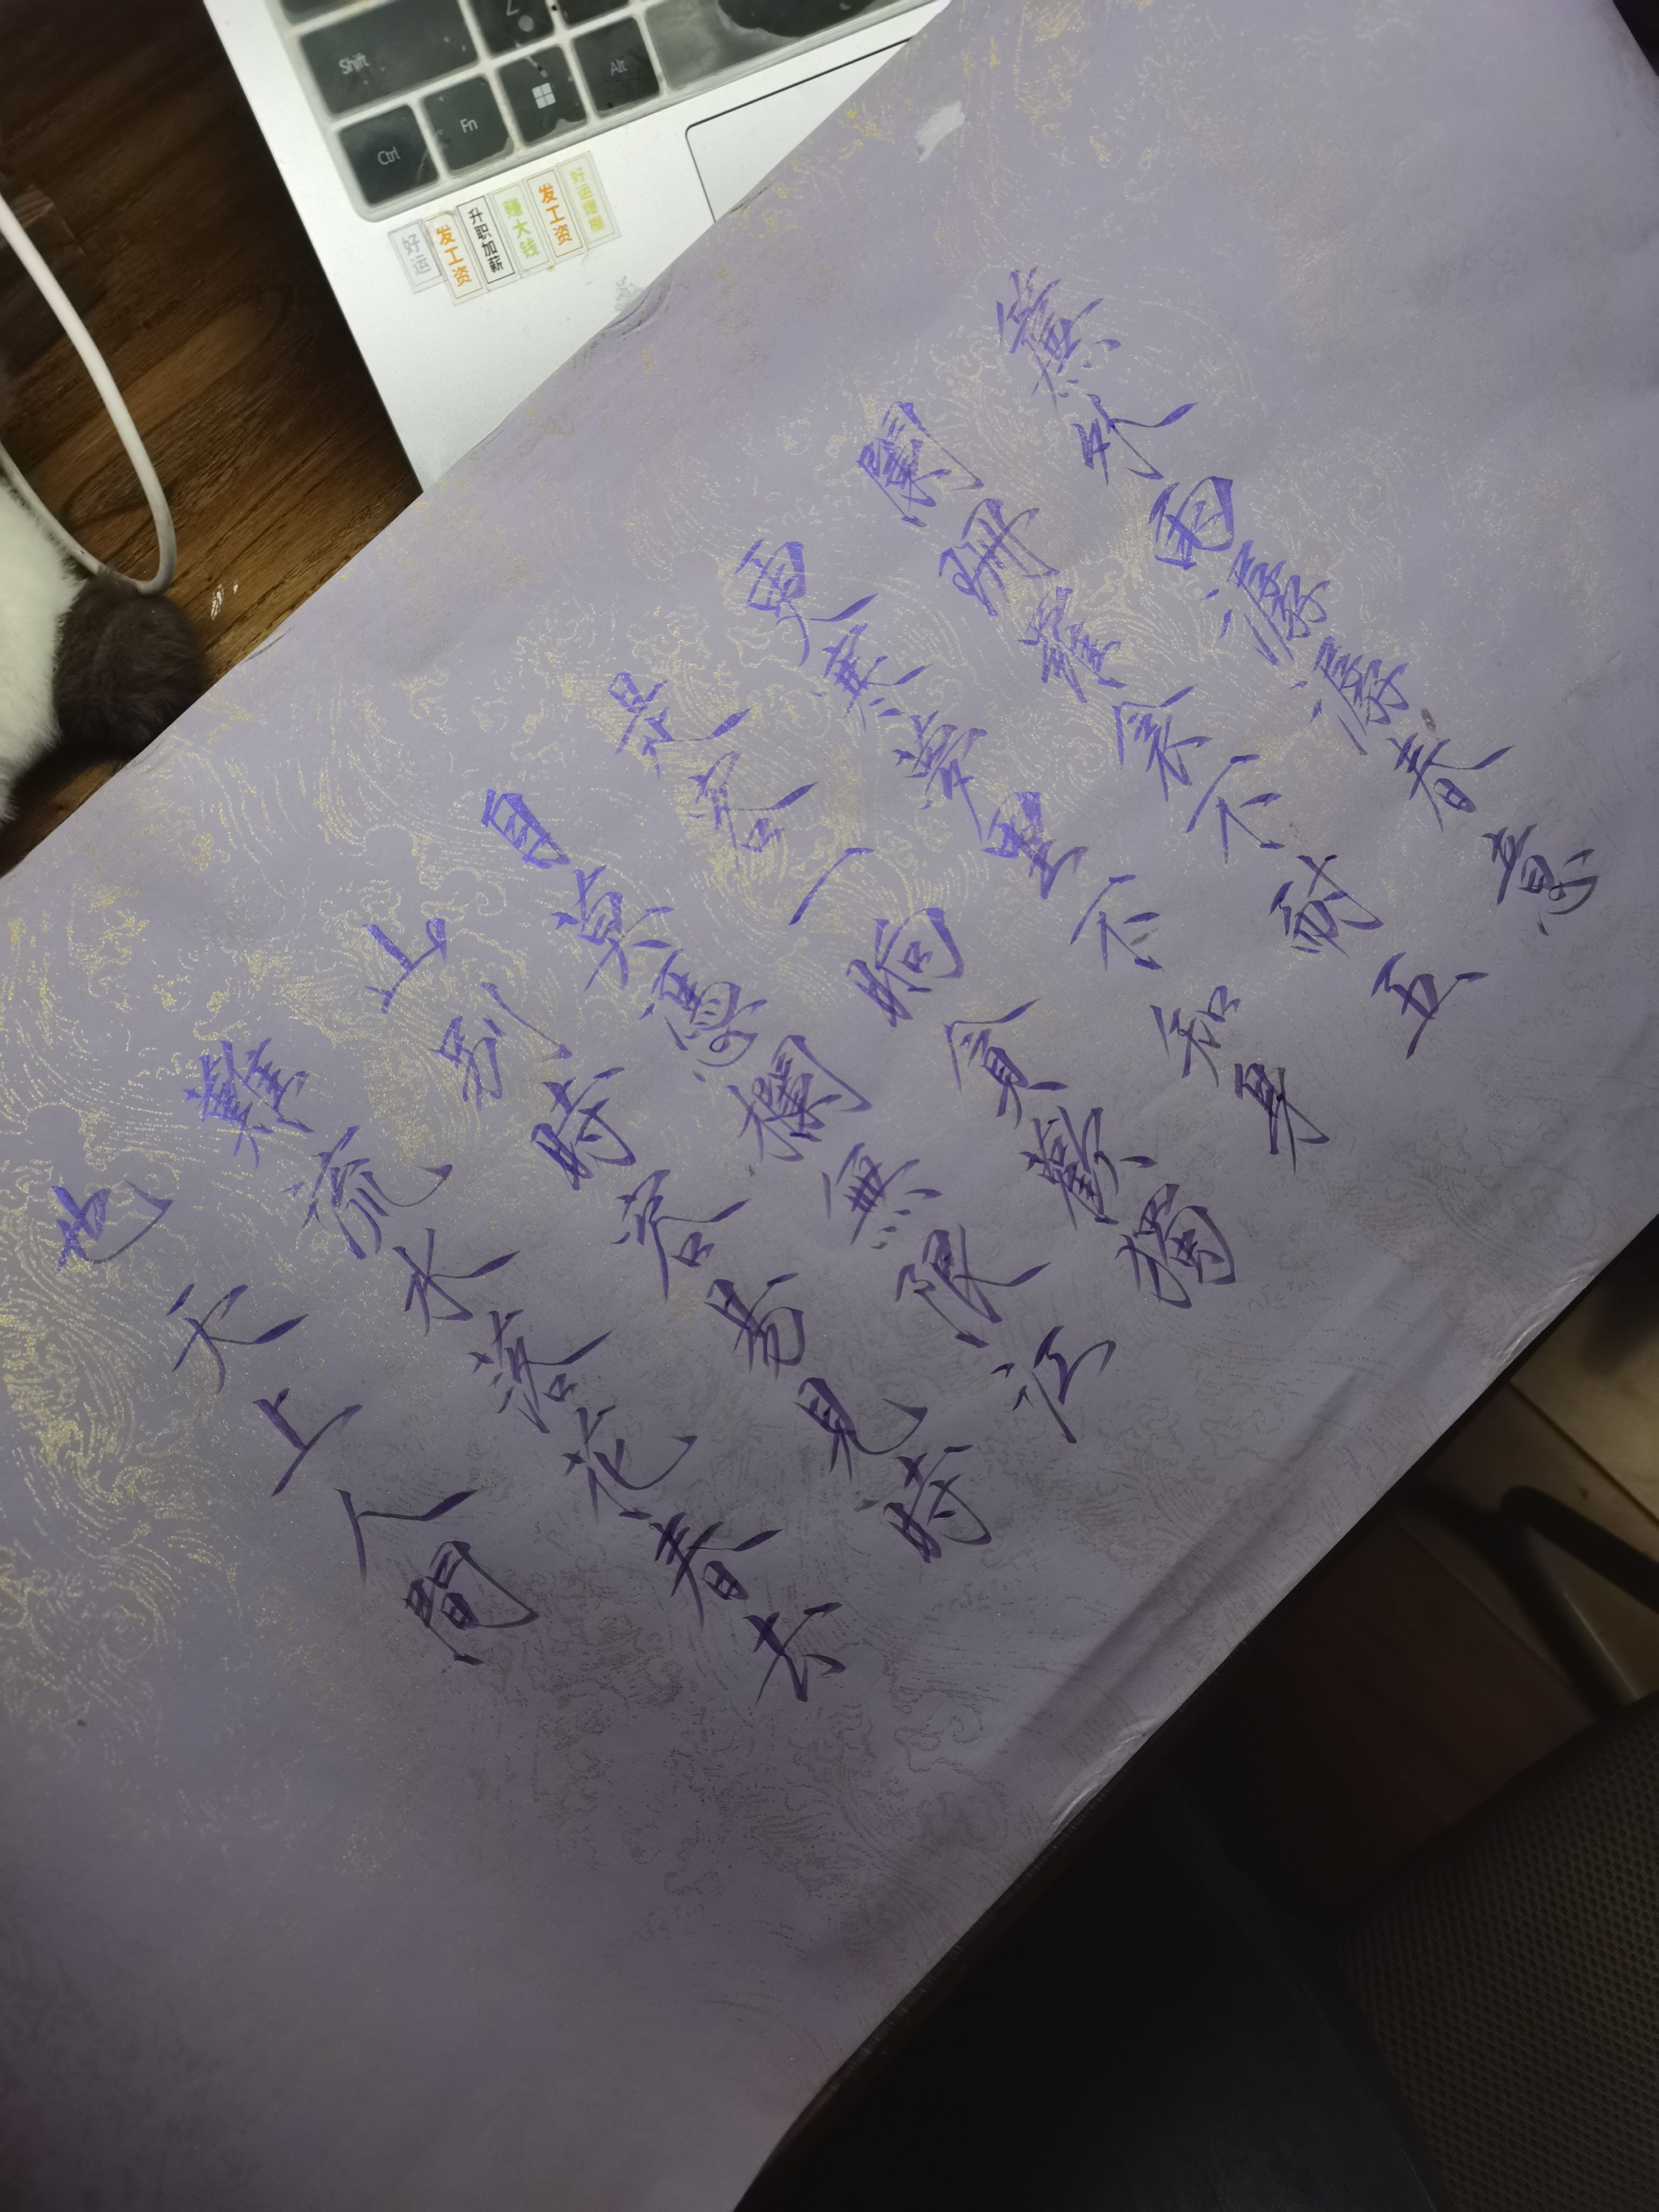 Shift
Z
Ctrl
Fn
Alt
好运
发工资
升职加薪
赚大钱
发工资
好运爆棚
簾外雨潺潺春意
闌珊羅衾不耐五
更寒夢里不知身
是客一晌貪歡獨
自莫憑欄無限江
山別時容易見時
難流水落花春去
也天上人間